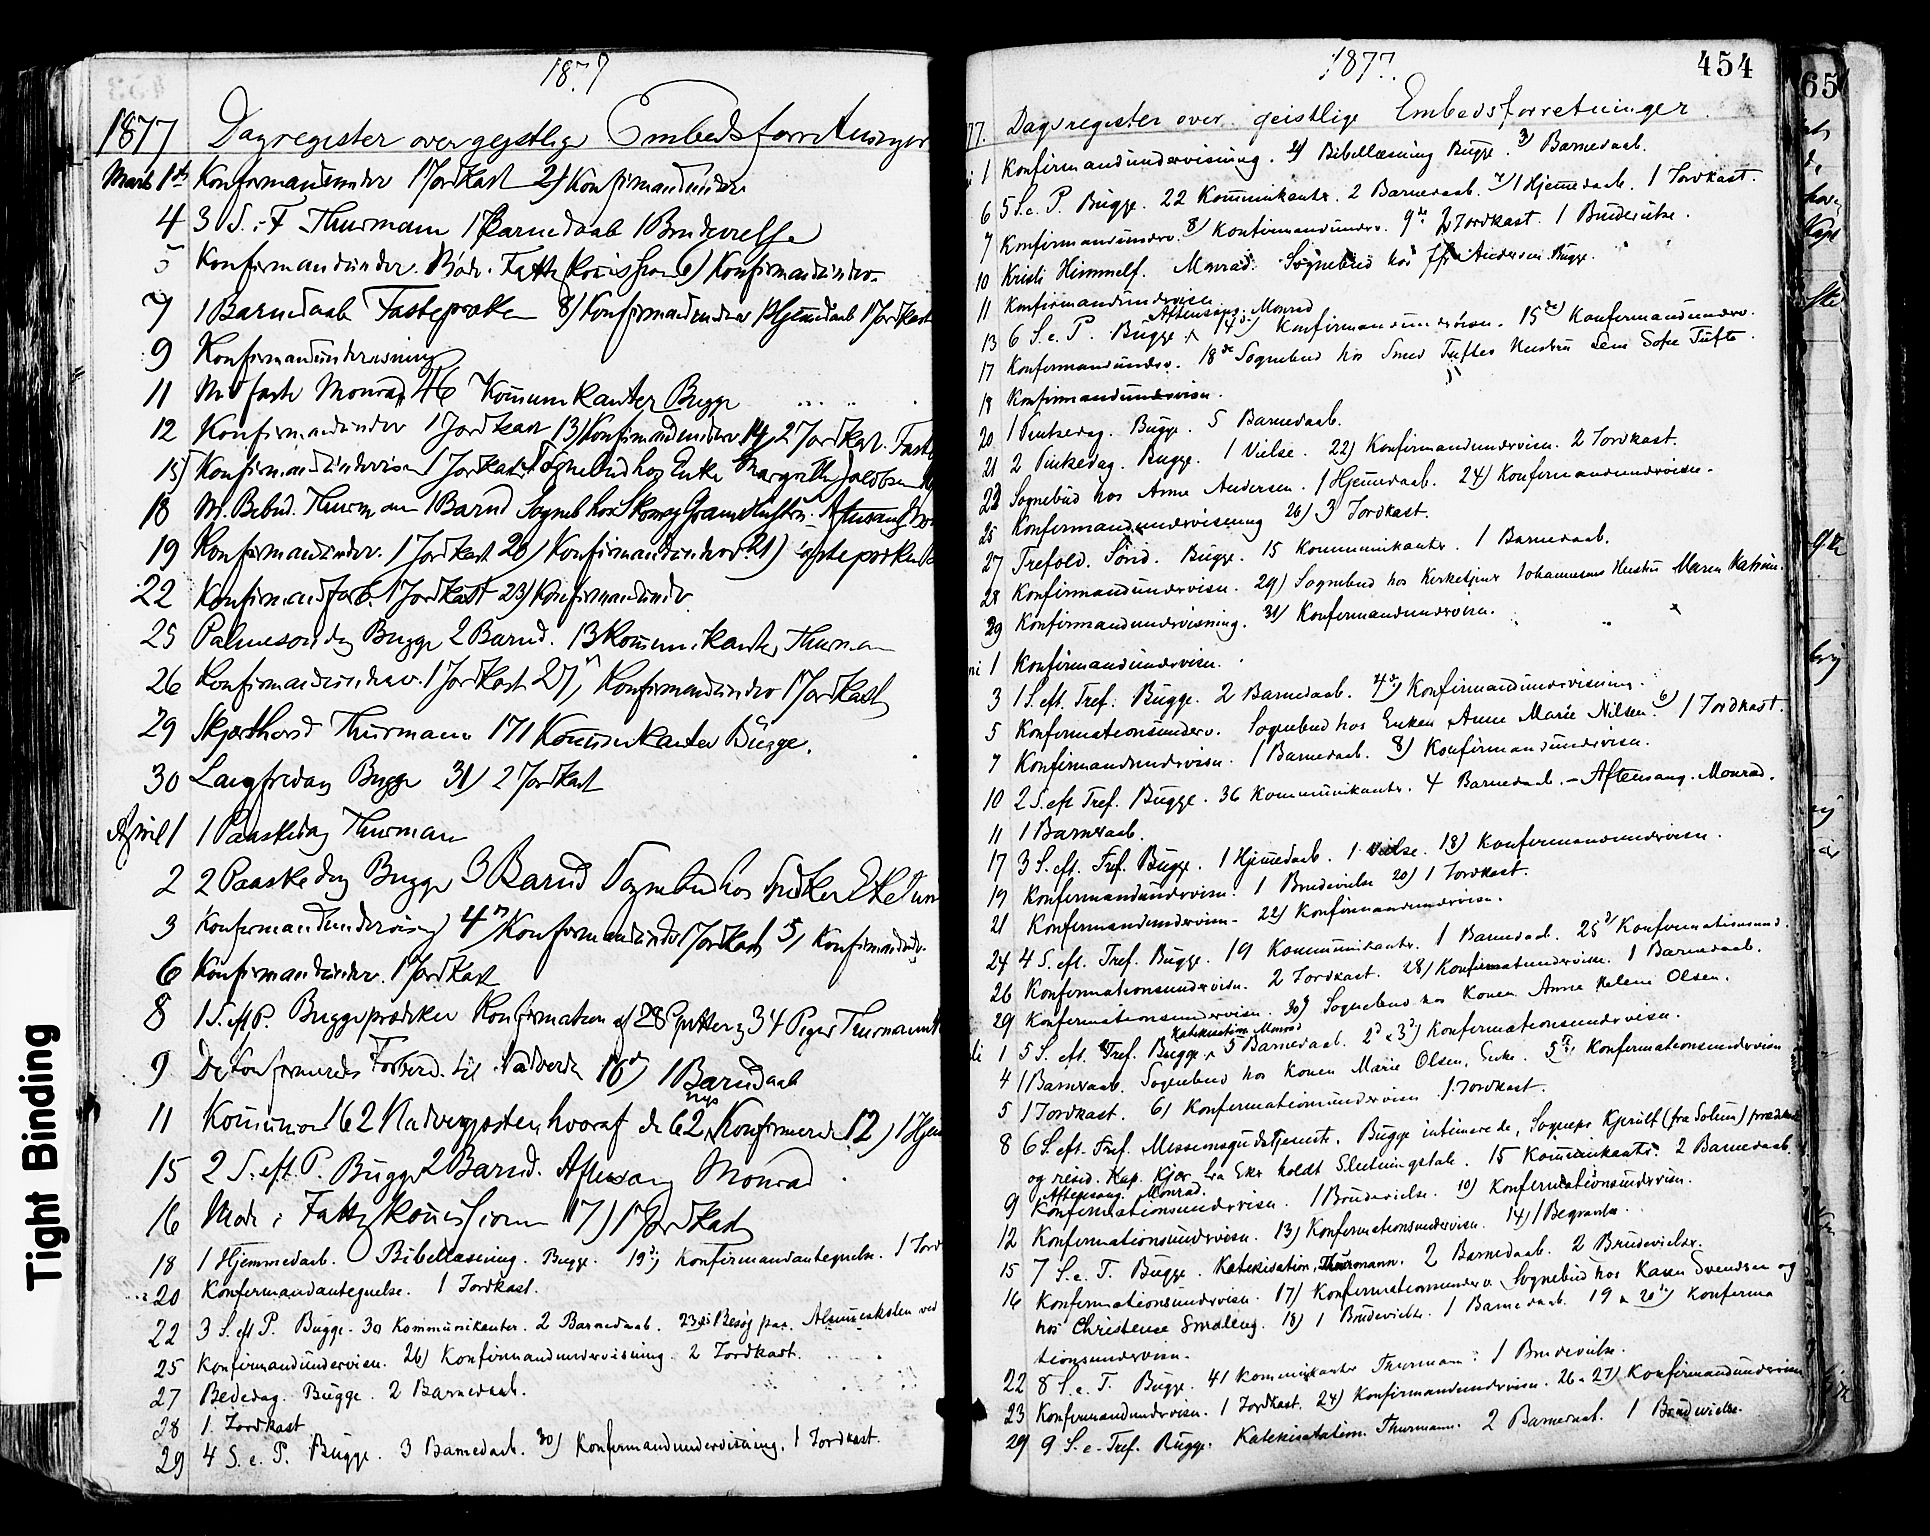 1877
1877 Dagregister over gejstlige Embedsforretninger
Marts 1ste Konfirmandunder 1 Jordkast 2) Konfirmandunder
4 3 S. i F Thurmann 1 Barnedaab 1 Brudevielse
5 Konfirmandunder. Fattigkomission 6) Konfirmandunder
7 1 Barnedaab Fastepræken 8) Konfirmandunder 1 Hjemdaab 1 Jordkast
9 Konfirmandundervisning
11 M i faste Monrad 46 Kommunikanter Bugge
12 Konfirmandunder 1 Jordkast 13) Konfirmandunder 14) 2 Jordkast. Faste
15) Konfirmandundervisn 1 Jordkast Sognebud hos Enke Margrethe Jacobsen
18 M. Bebud. Thurmann 1 Barned Sogneb hos Skomag Hustru. Aftensang
19 Konfirmandunder. 1 Jordkast 20) Konfirmandunder 21) Fastepræken
22 Konfirmandforb. 1 Jordkast 23) Konfirmandundv.
25 Palmesondag Bugge 2 Barned. 13 Kommunikanter Thurmann
26 Konfirmandunderv. 1 Jordkast 27) Konfirmandunder 1 Jordkast
29 Skjærthorsd Thurmann 171 Kommunikanter Bugge.
30 Langfredag Bugge 31) 2 Jordkast
April 1 1 Paaskedag Thurmann
2 2 Paaskedag Bugge 3 Barned Sognebud hos
3 Konfirmandundervisning 4) Konfirmandunder 1 Jordkast 5) Konfirmandundv.
6 Konfirmandunder. 1 Jordkast
8 1 S. eft P. Bugge prædiker Konfirmation af 28 Gutter og 34 Piger Thurmann
9 De konfirmeredes Forbered. til Nadveren 10) 1 Barnedaab
11 Kommunion 162 Nadvergjester, hvoraf de 62 nys Konfirmerede 12) 1 Hjem
15 2 S. eft. P. Bugge 2 Barned. Aftensang Monrad
16 Mode i Fattigkomissionen 17) 1 Jordkast
18 1 Hjemmedaab. Bibellæsning. Bugge. 19) Konfirmandantegnelse. 1 Jord
20 Konfirmandantegnelse. 1 Jordkast.
22 3 S. eft P. Bugge. 30 Kommunikanter. 2 Barnedaab. 23) Besøg paa Almueskolen ved
25 Konfirmandundervisn. 26) Konfirmandundervisning. 2 Jordkast.
27 Bededag. Bugge. 2 Barnedaab.
28 1. Jordkast
29 4 S. e. P. Bugge. 3 Barnedaab. 30) Konfirmandundervisning. 1 Jordkast.
1877.
454
77. Dagsregister over geistlige Embedsforretninger
i 1 Konfirmandundervisning. 2) Bibellæsning Bugge. 3) Barnedaab.
6 5 S. e. P. Bugge. 22 Kommunikanter. 2 Barnedaab. 1 Hjemedaab. 1 Jordkast.
7 Konfirmandunderv. 8) Konfirmandunderv. 9de 2 Jordkast. 1 Brudevielse.
10 Kristi Himmelf. Monrad. Sognebud hos Andersen Bugge.
11 Konfirmandundervisn.
Aftensang. Monrad
13 6 S. e. P. Bugge 14) Konfirmandundervisn. 15de) Konfirmandunderv.
17 Konfirmandunderv. 18de Sognebud hos Smed Tuftes Hustru Lene Sofie Tufte.
18 Konfirmandundervisn.
20 1 Pintsedag. Bugge. 5 Barnedaab.
21 2 Pintsedag. Bugge. 1 Vielse. 22) Konfirmandundervisn. 2 Jordkast.
23 Sognebud hos Anne Andersen. 1 Hjemedaab. 24) Konfirmandundervisn.
25 Konfirmandundervisning 26) 3 Jordkast.
27 Trefold. Sönd. Bugge. 15 Kommunikanter. 1 Barnedaab.
28 Konfirmandundervisn. 29) Sognebud hos Kirketjener Johannesens Hustru Maren Kathrin.
29 Konfirmandundervisning. 31) Konfirmandundervisn.
ni 1 Konfirmandundervisn.
3 1 S. eft. Tref. Bugge. 2 Barnedaab. 4de) Konfirmandundervisning.
5 Konfirmationsunderv. Sognebud hos Enken Anne Marie Nilsen. 6) 1 Jordkast.
7 Konfirmandundervisn. 1 Barnedaab. 8) Konfirmandundervisn.
10 2 S. eft Tref. Bugge. 36 Kommunikanter. 4 Barnedaab. - Aftensang. Monrad.
11 1 Barnedaab.
17 3 S. eft. Tref. Bugge. 1 Hjemedaab. 1 Vielse. 18) Konfirmandundervisn.
19 Konfirmandundervisn. 1 Brudevielse 20) 1 Jordkast.
21 Konfirmandundervisn. 22) Konfirmandundervisn.
24 4 S. eft. Tref. Bugge. 19 Kommunikanter. 1 Barnedaab. 25) Konfirmationsund.
26 Konfirmationsundervisn. 2 Jordkast. 28) Konfirmationundervisn. 1 Barnedaab.
29 Konfirmationsundervisn. 30) Sognebud hos Konen Anne Helene Olsen.
Katekisation Monrad
li 1 5 S. eft. Tref. Bugge 5 Barnedaab. 2 & 3) Konfirmationsundervisn.
4 1 Barnedaab. Sognebud hos Konen Marie Olsen, Enke. 5) Konfirmationsundervisn
5 1 Jordkast. 6) Konfirmationundervisn 1 Jordkast.
8 6 S. eft. Tref. Missionsgudstjeneste. Bugge intimerede, Sognepr Kjerulf (fra Solum) prædikede
og resid. Kap. Kjær fra Eker holdt Slutningstale. 15 Kommunikanter. 2 Barnedaab.
Aftensang. Monrad.
9 Konfirmationsundervisn. 1 Brudevielse. 10) Konfirmationsundervisn.
12 Konfirmationsundervisn. 13) Konfirmationsundervisn. 14) 1 Begravelse.
15 7 S. e. T. Bugge. Katekisation, Thurmann. 2 Barnedaab. 2 Brudevielser.
16 Konfirmationsundervisn. 17) Konfirmationsunderv. Sognebud hos Karen Svendsen og
hos Christense Smaleng. 18) 1 Brudevielse. 1 Barnedaab. 19 & 20) Konfirma
tionsundervisn.
22 8 S. e. T. Bugge. 41 Kommunikanter Thurmann. 1 Brudevielse.
23 Konfirmandundervisn. 1 Jordkast. 24) Konfirmandundervisn. 26 & 27) Konfirmandundervisn
29 9 S. e. Tref. Bugge. Katekisation Thurmann. 2 Barnedaab. 1 Brudevielse.
65
Tight Binding